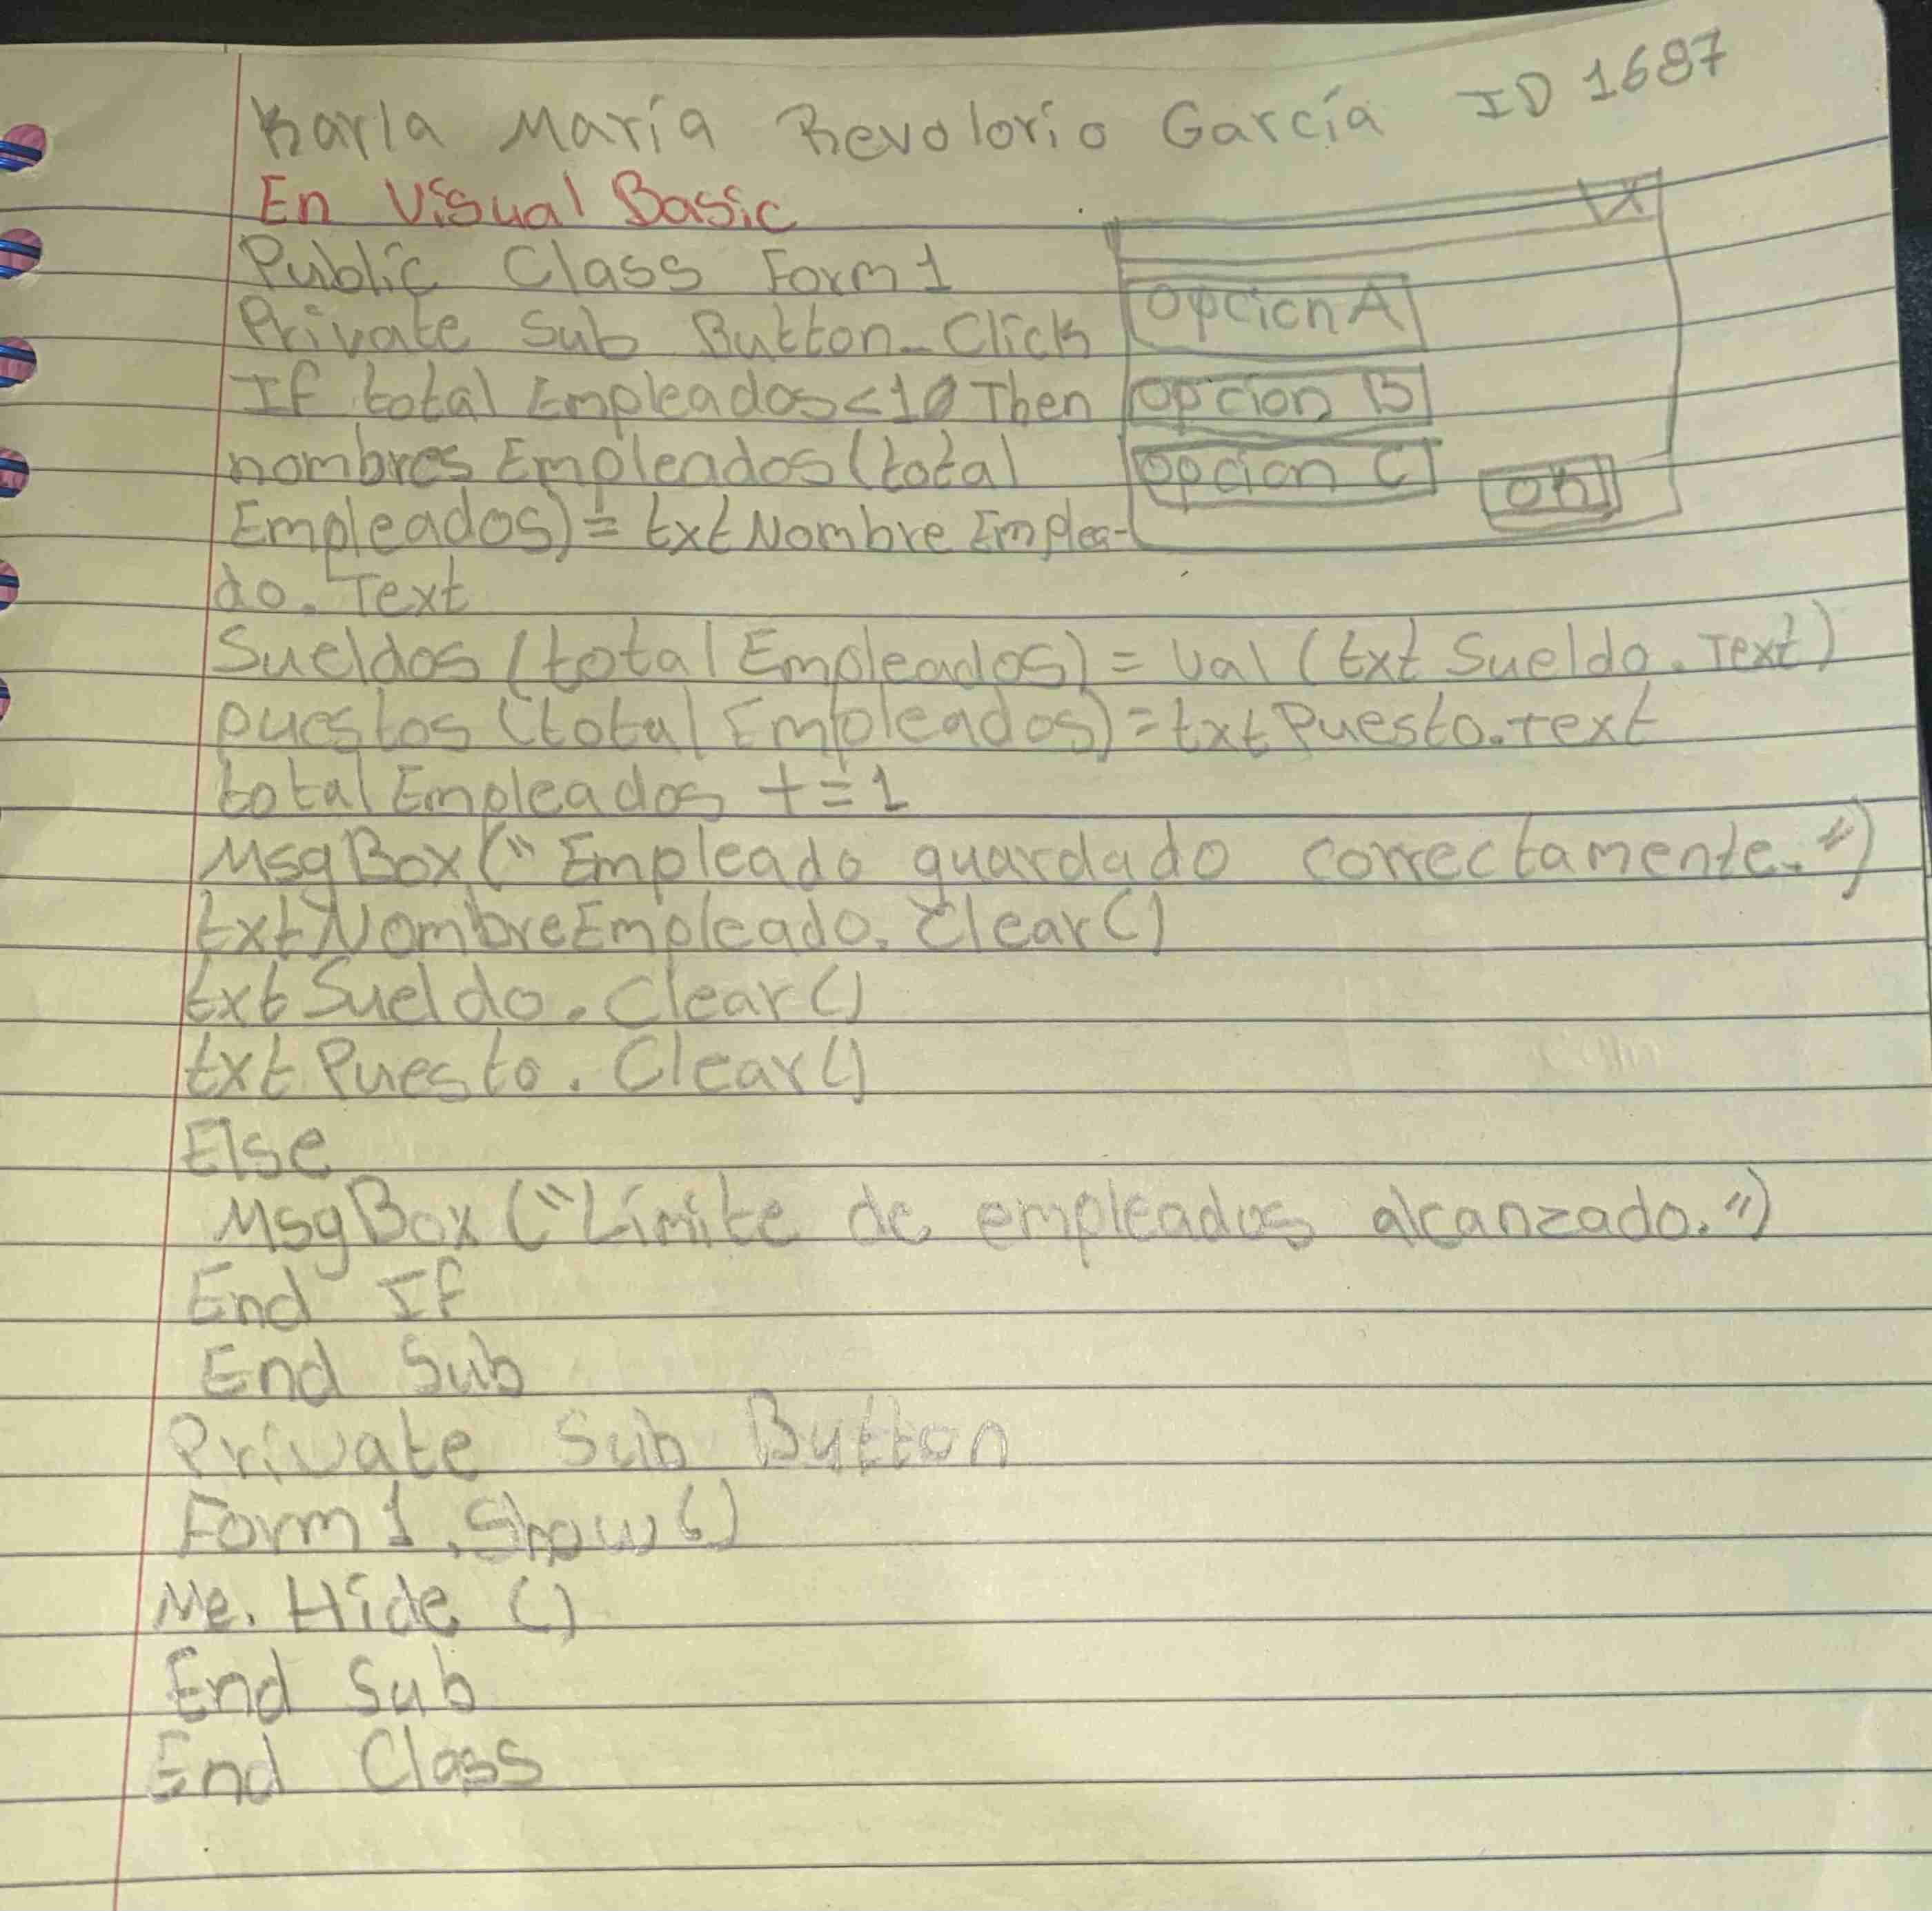 Karla María Revolorio García ID 1687
En Visual Basic
Public Class Form1
Private Sub Button_Click
If total Empleados<10 Then
nombres Empleados (total
Empleados) = txt Nombre Emplea-
do. Text
Sueldos (total Empleados) = Val (txt Sueldo. Text)
puestos (total Empleados) = txt Puesto. text
total Empleados += 1
MsgBox ("Empleado guardado correctamente.")
txtNombreEmpleado. Clear()
txt Sueldo. Clear()
txt Puesto. Clear()
Else
MsgBox ("Límite de empleados alcanzado.")
End If
End Sub
Private Sub Button
Form1. Show()
Me. Hide ()
End Sub
End Class
X
opcion A
opcion B
opcion C
ok